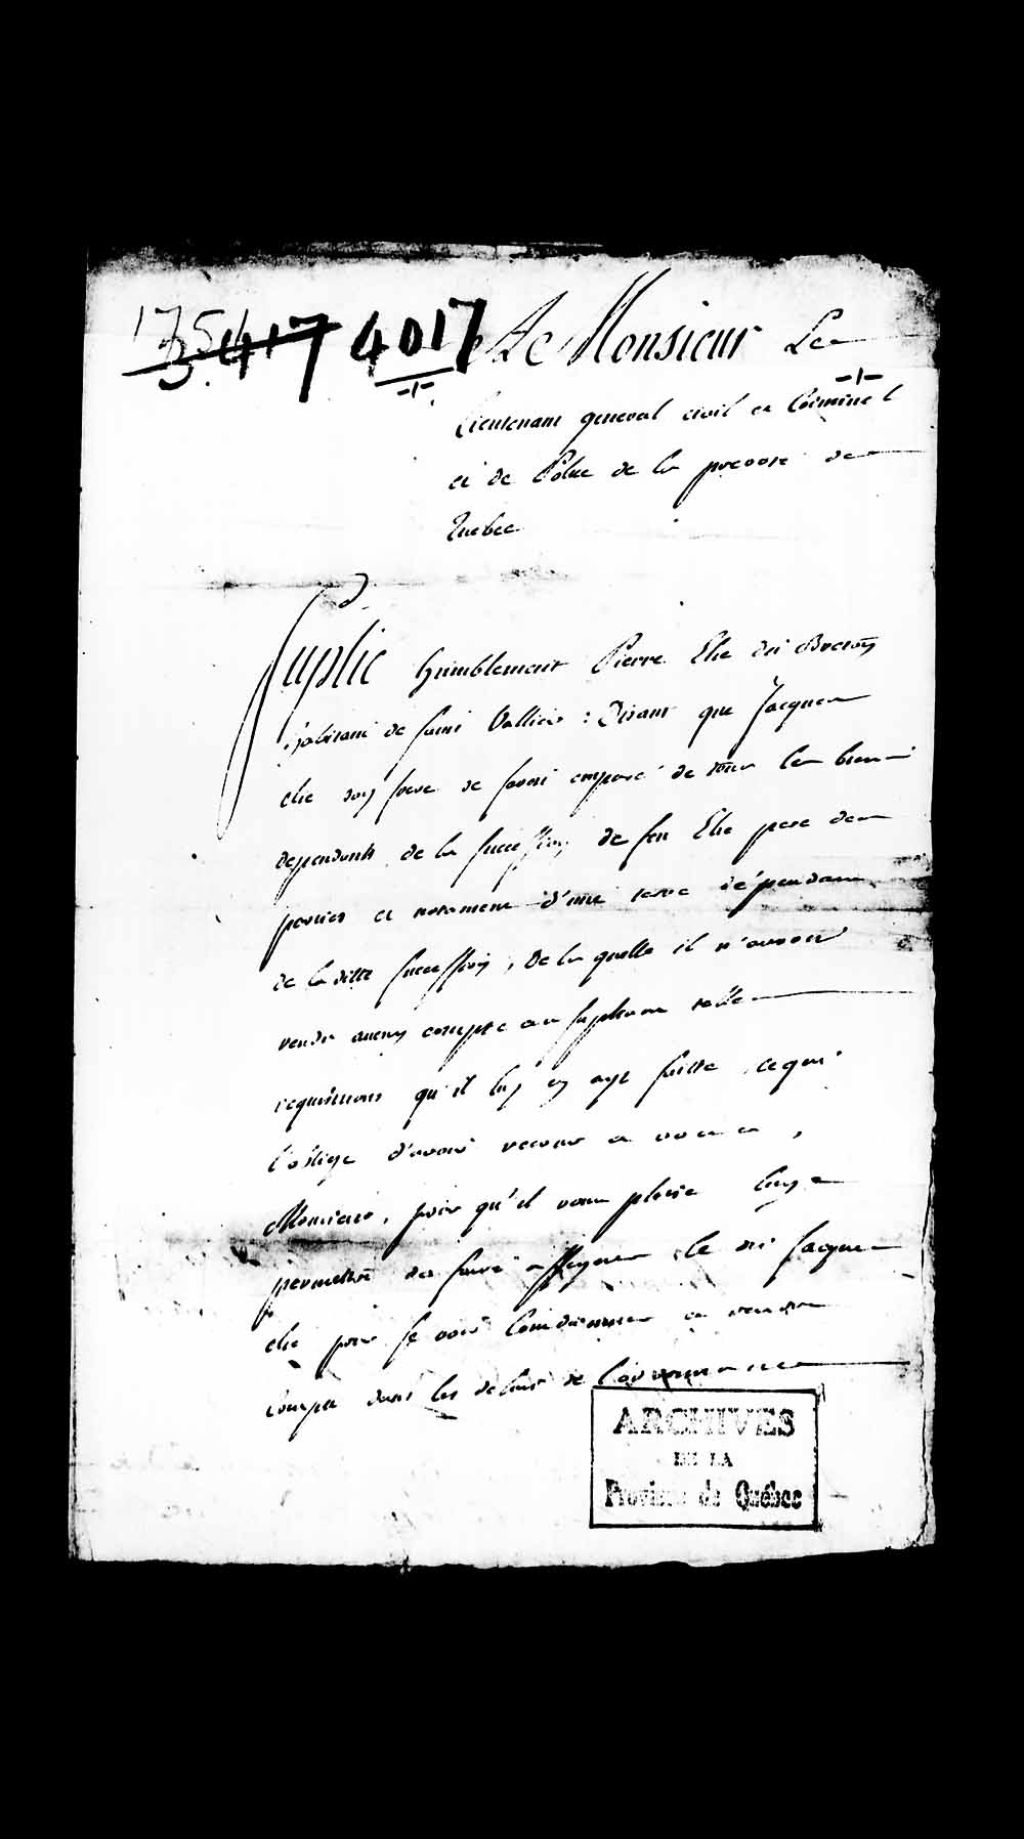 175
3417 4017 A Monsieur Le
Lieutenant general civil et Criminel
et de Police de la prevoté de
Quebec
Suplie humblement Pierre Elie dit Breton
habitant de saint Vallier : Disant que Jacques
elie son frere se seroit emparé de tous les biens
dependants de la succession de feu Elie pere des
parties et notament d'une terre dépendante
de la ditte succession, de la quelle il n'auroit
rendu aucun compte au supliant telle
requisitions qu'il luy en aye faitte, ce qui
l'oblige d'avoir recours a vous,
Monsieur, pour qu'il vous plaise luy
permettre de faire assigner le dit Jacques
elie pour se voir Condamner a rendre
compte dans les delais de l'ordonnance
ARCHIVES
DE LA
Province de Québec